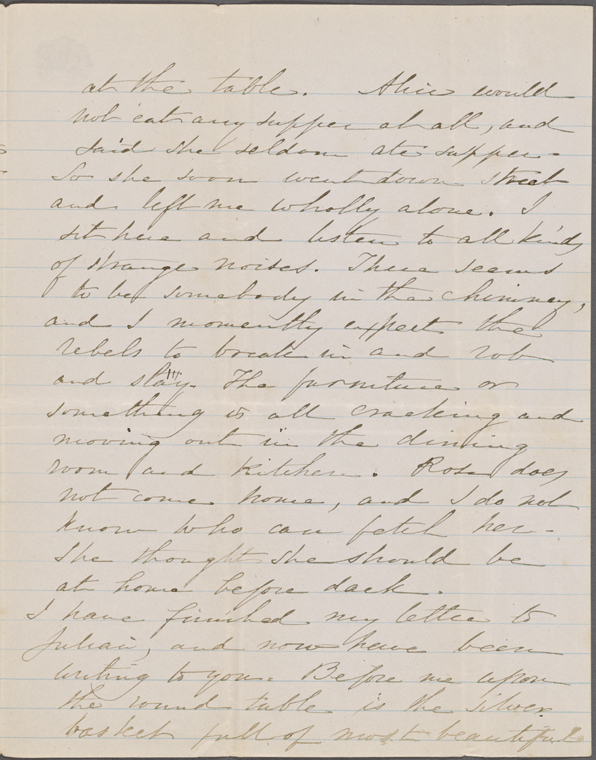 at the table. Alice would
not eat any supper at all, and
said she seldom ate supper-
So she soon went down street
and left me wholly alone. I
sit here and listen to all kinds
of strange noises. There seems
to be somebody in the chimney,
and I momently expect the
rebels to break in and rob
and slay!!! The furniture or
something is all cracking and
moving out in the dining
room and kitchen. Rose does
not come home, and I do not
know who can fetch her-
She thought she should be
at home before dark.
I have finished my letter to
Julian, and now have been
writing to you. Before me upon
the round table is the silver
basket full of most beautiful